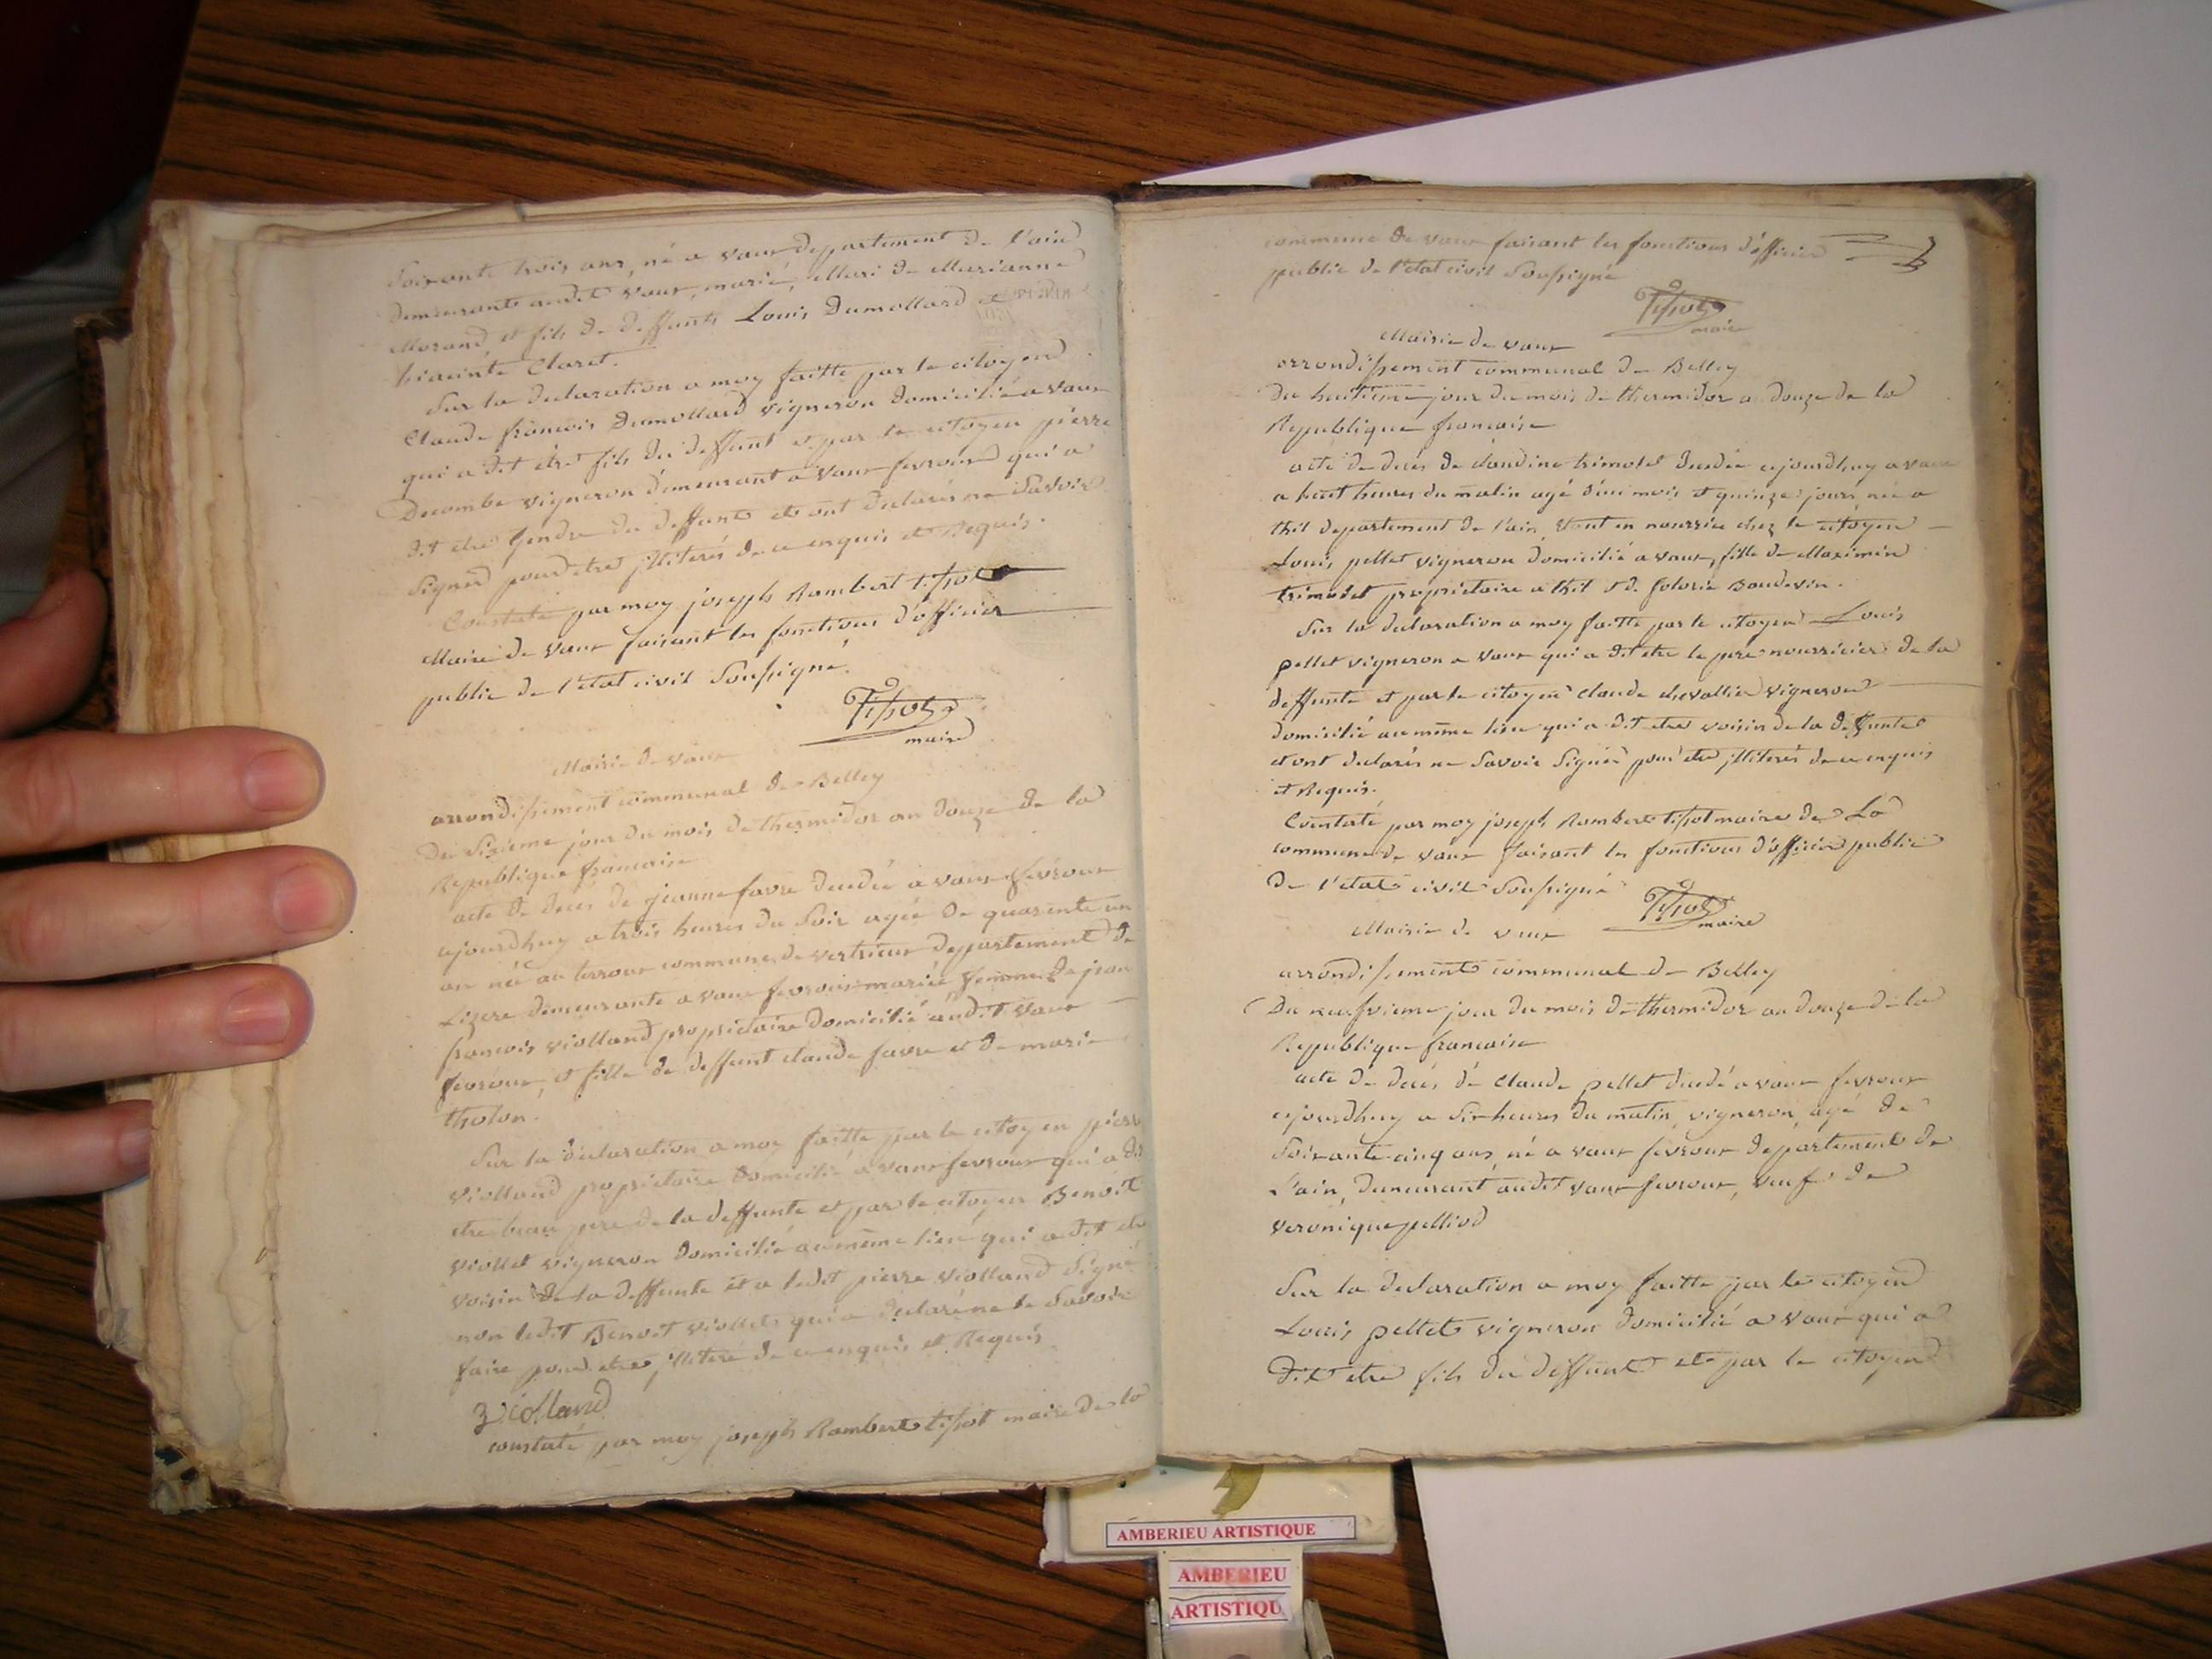 Soixante trois ans, né a vaux departement de l'ain
demeurants audit vaux, marié, Mari de Marianne
Morand, et fils de deffunts Louis Dumollard et
hiacinte Claret.
Sur la declaration a moy faitte par le citoyen
Claude francois Dumollard vigneron domicilié a vaux
qui a dit étre fils du deffunt et par le citoyen pierre
Decombe vigneron demeurant a vaux fevroux qui a
dit etre Gendre du deffunt et ont declarés ne Savoir
Signer pour etre jlliterés de ce enquis et Requis.
Constaté par moy joseph Rambert tissot
Maire de vaux faisant les fonctions d'officier
public de l'etat civil Soussigné.
Tissot
maire
Mairie de vaux
arrondissement communal de Belley
Du Sixieme jour du mois de thermidor an douze de la
Republique francaise
acte de decés de jeanne favre decedée a vaux fevroux
ajourdhuy a trois heures du Soir agée de quarente un
an née au commune de vertrieux departement de
Lizere demeurante a vaux fevroux mariée femme de jean
francois violland proprietaire domicilié audit vaux
fevroux, et fille de deffunt claude favre et de marie
tholon.
Sur la declaration a moy faitte par le citoyen pierre
violland proprietaire domicilié a vaux fevroux qui a dit
etre beau pere de la deffunte et par le citoyen Benoit
viollet vigneron domicilié au même lieu qui a dit etre
voisin de la deffunte et a ledit pierre violland Signé
non ledit Benoit viollet qui a declaré ne le Savoir
faire pour etre jlliteré de ce enquis et Requis
violland
constaté par moy joseph Rambert tissot maire de la
commune de vaux faisant les fonctions d'officier
public de l'etat civil Soussigné
Tissot
maire
Mairie de vaux
arrondissement communal de Belley
Du huitieme jour du mois de thermidor a douze de la
Republique francaise
acte de decés de claudine trimolet decedée ajourdhuy a vaux
a huit heures du matin agé d'un mois et quinze jours, née a
thil departement de l'ain, etant en nourrice chez le citoyen
Louis pellet vigneron domicilié a vaux, fille de Maximin
trimolet proprietaire a thil et de Baudevin.
Sur la declaration a moy faitte par le citoyen Louis
pellet vigneron a vaux qui a dit etre le pere nourricier de la
deffunte et par le citoyen claude chevallier vigneron
domicilié au même lieu qui a dit etre voisin de la deffunte
et ont declarés ne Savoir Signer pour etre jlliterés de ce enquis
et Requis.
Constaté par moy joseph Rambert tissot maire de La
commune de vaux faisant les fonctions d'officier public
De l'etat civil Soussigné
Tissot
maire
Mairie de vaux
arrondissement communal de Belley
Du neufvieme jour du mois de thermidor an douze de la
Republique francaise
acte de decés de claude pellet decedé a vaux fevroux
ajourdhuy a Six heures du matin, vigneron, agé de
Soixante cinq ans, né a vaux fevroux departement de
l'ain, demeurant audit vaux fevroux, veuf de
veronique pelliod
Sur la declaration a moy faitte par le citoyen
Louis pellet vigneron domicilié a vaux qui a
Dit etre fils du deffunt et par le citoyen
AMBERIEU ARTISTIQUE
AMBERIEU
ARTISTIQU